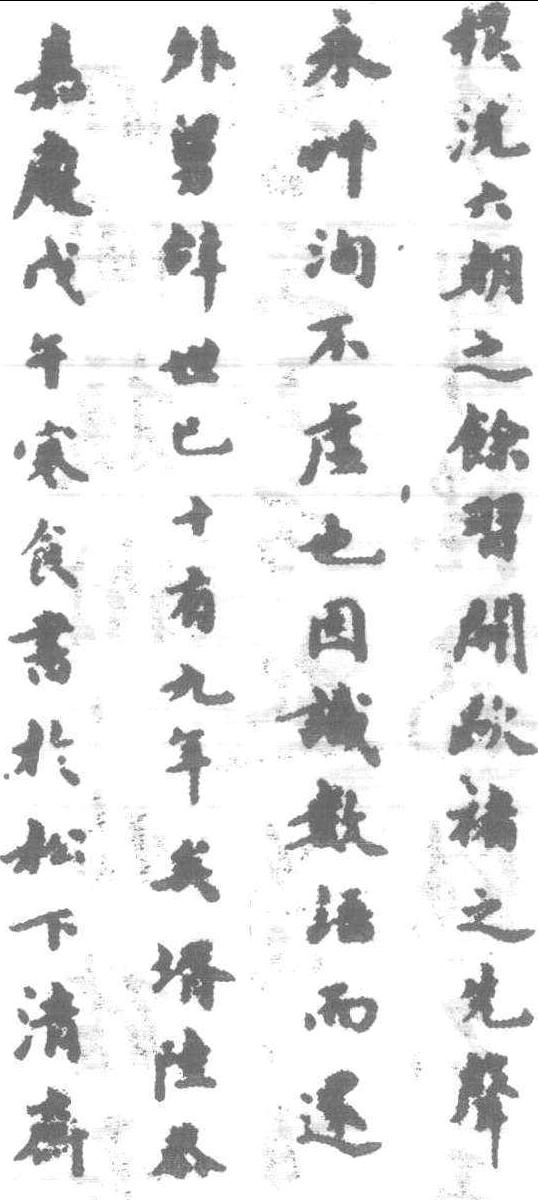 根洗六朝之餘習開歐褚之先聲
永叶洵不虛也因識數語而還
外舅辭世已十有九年矣壻陸恭
嘉慶戊午寒食書於松下清齋